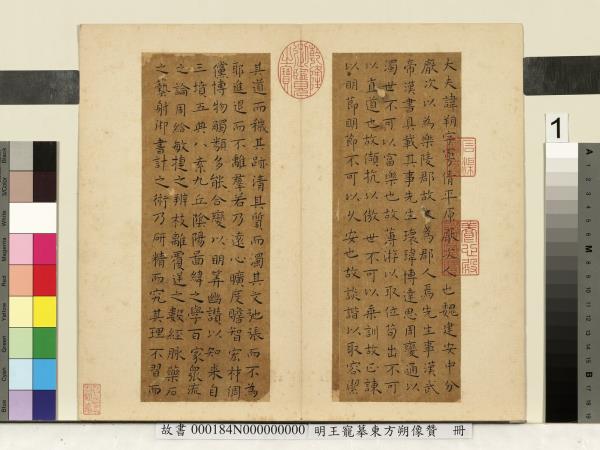 大夫諱朔字曼倩平原厭次人也魏建安中分
厭次以為樂陵郡故又為郡人焉先生事漢武
帝漢書具載其事先生瓌瑋博達思周變通以
濁世不可以富樂也故薄游以取位苟出不可
以直道也故頡抗以傲世不可以垂訓故正諫
以明節明節不可以久安也故談諧以取容潔
其道而穢其跡清其質而濁其文弛張而不為
耶進退而不離羣若乃遠心曠度贍智宏材倜
儻博物觸類多能合變以明筭幽讚以知來自
三墳五典八索九丘陰陽圖緯之學百家眾流
之論周給敏捷之辨枝離覆逆之數經脉藥石
之藝射御書計之術乃研精而究其理不習而
養心殿
1
故書 000184N000000000 明王寵摹東方朔像贊 冊